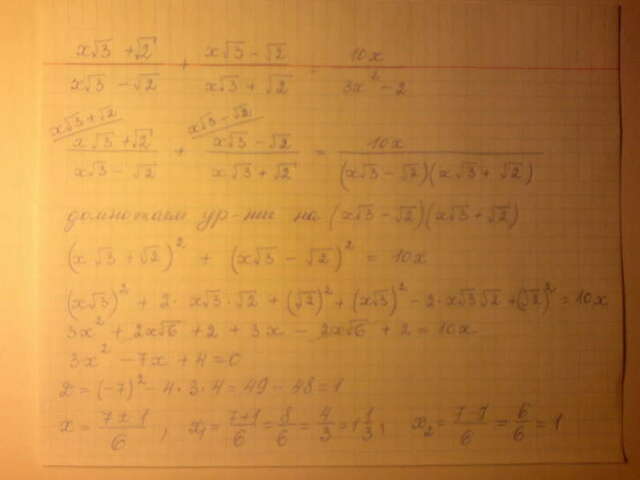 (x√3 + √2)/(x√3 − √2) + (x√3 − √2)/(x√3 + √2) = 10x/(3x² − 2)
x√3+√2 x√3−√2
(x√3 + √2)/(x√3 − √2) + (x√3 − √2)/(x√3 + √2) = 10x/((x√3 − √2)(x√3 + √2))
домножаем ур-ние на (x√3 − √2)(x√3 + √2)
(x√3 + √2)² + (x√3 − √2)² = 10x
(x√3)² + 2· x√3·√2 + (√2)² + (x√3)² − 2·x√3√2 + (√2)² = 10x
3x² + 2x√6 + 2 + 3x − 2x√6 + 2 = 10x
3x² − 7x + 4 = 0
D = (−7)² − 4·3·4 = 49 − 48 = 1
x = (7±1)/6 , x₁ = (7+1)/6 = 8/6 = 4/3 = 1 1/3; x₂ = (7−1)/6 = 6/6 = 1